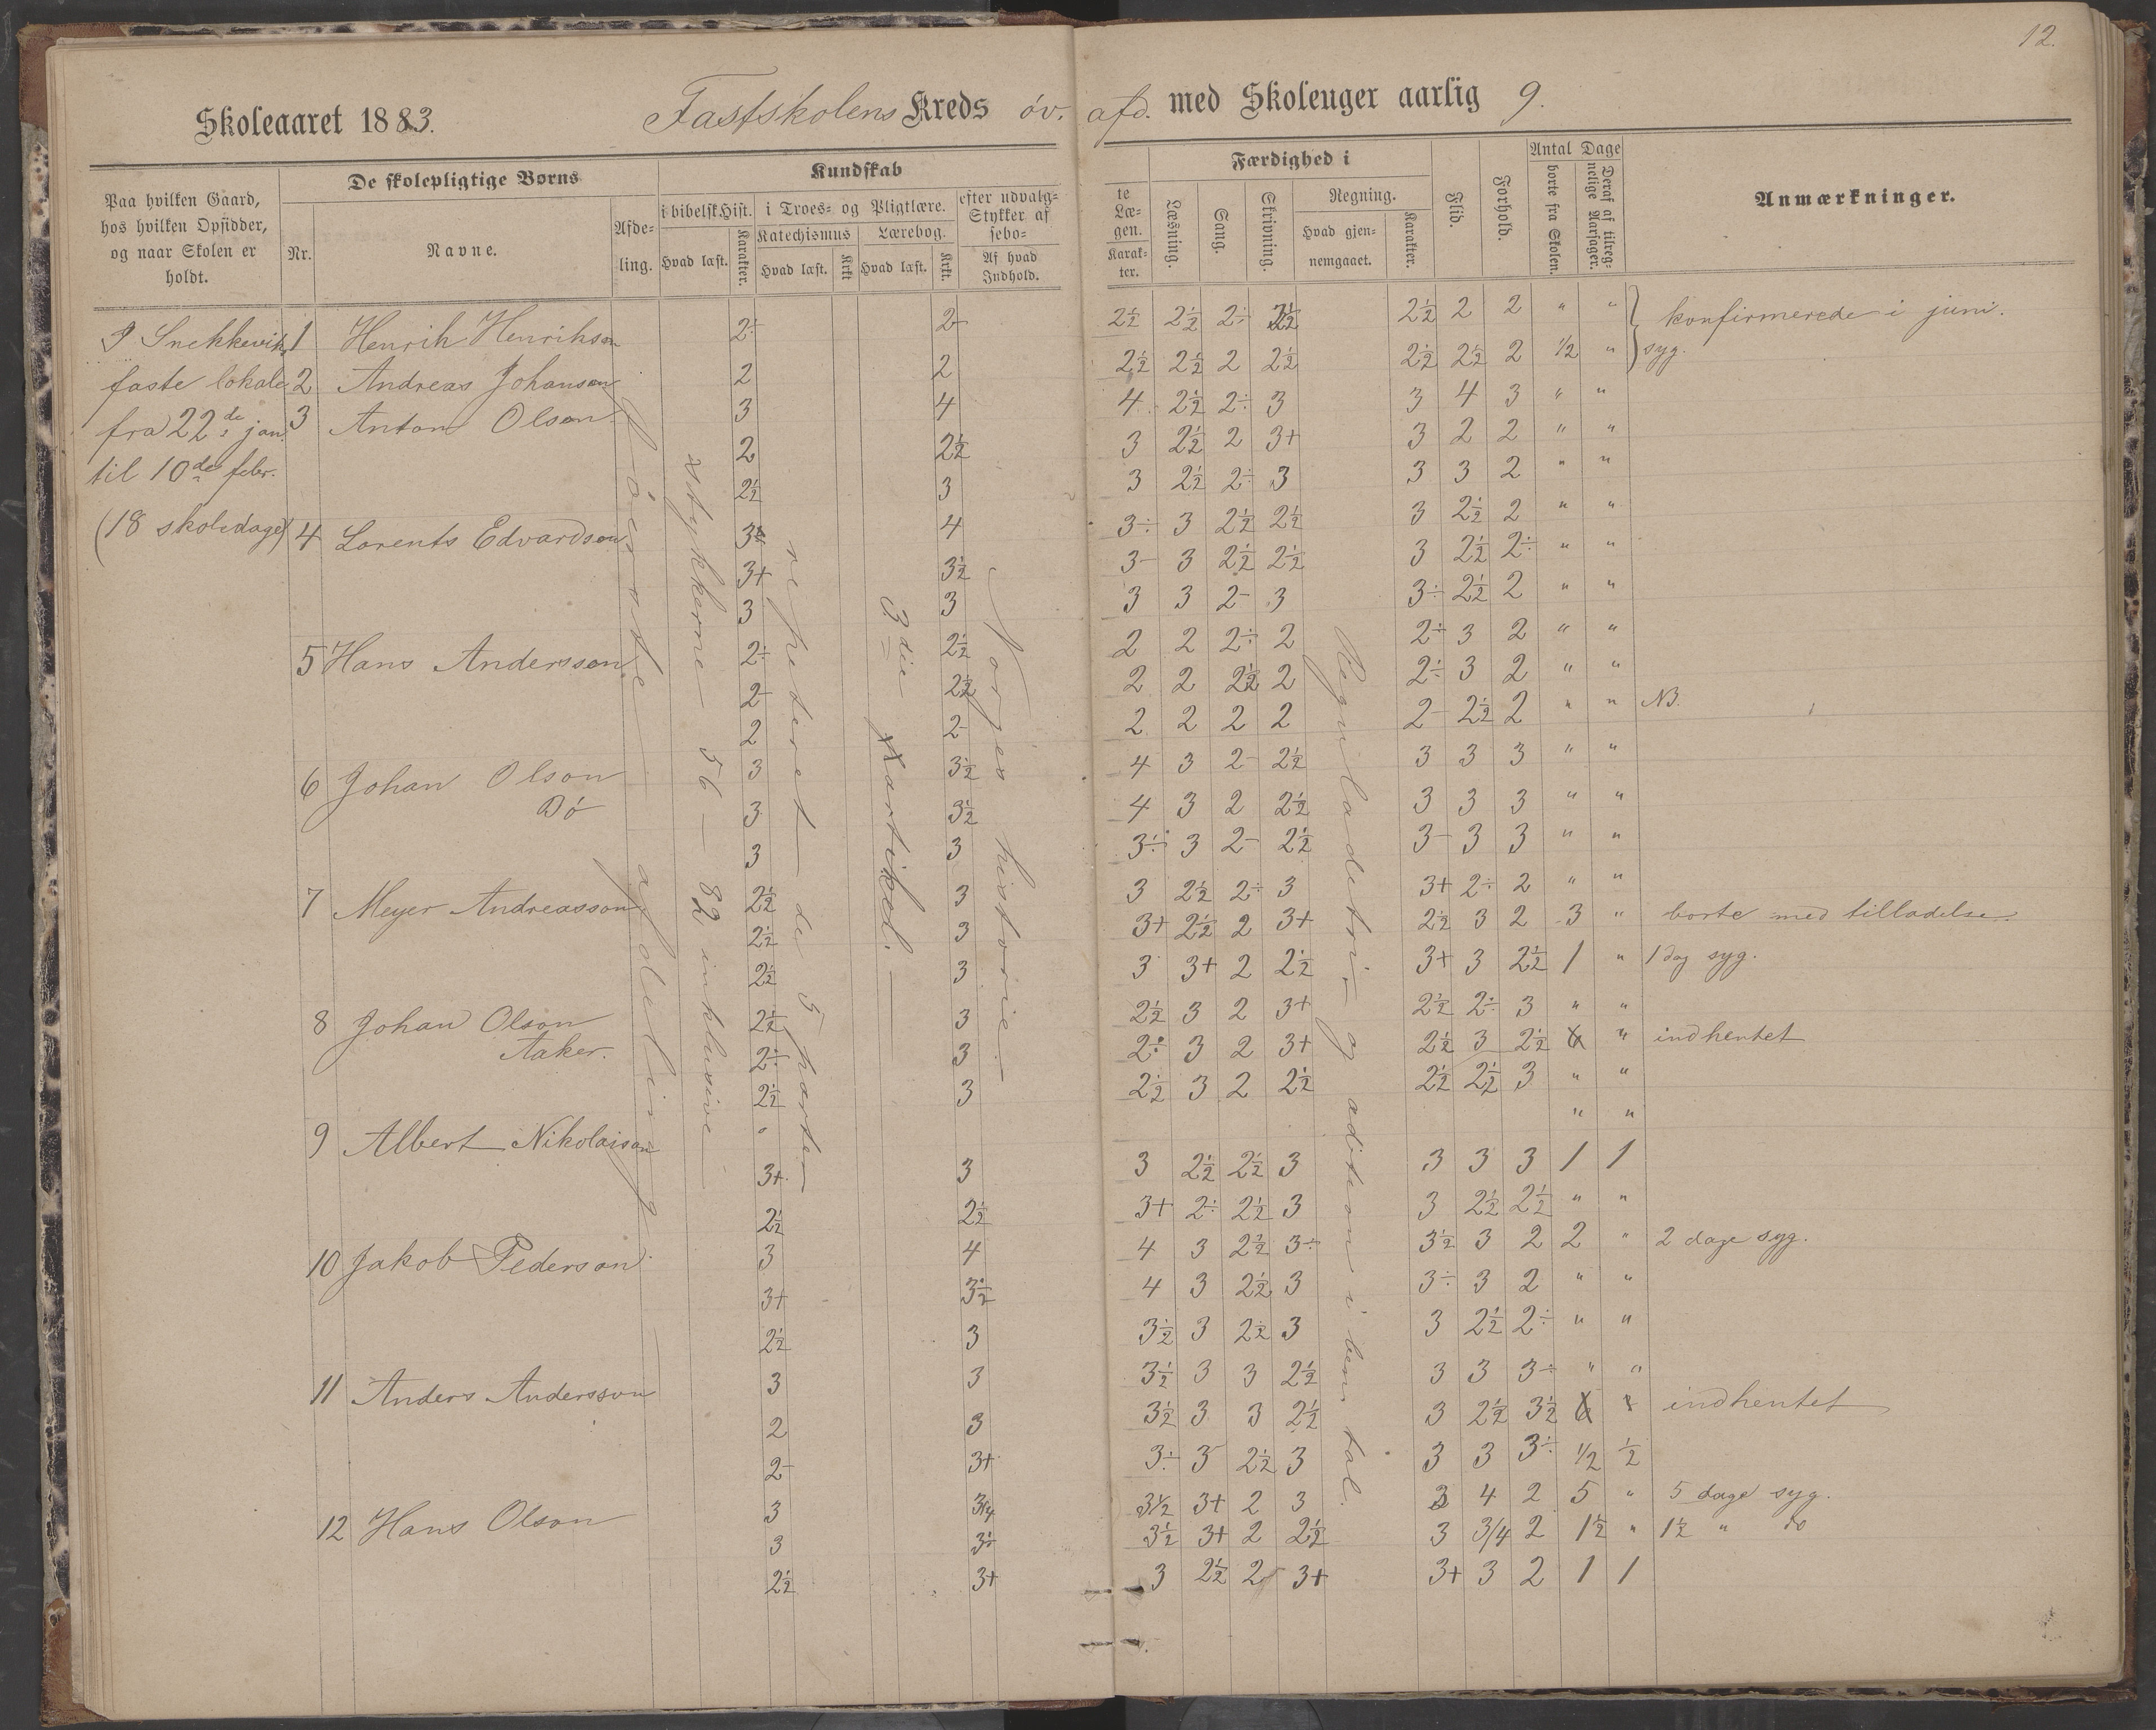 12.
Skoleaaret 1883. Fastskolens Kreds öv. afd. med Skoleuger aarlig 9.
Paa hvilken Gaard, hos hvilken Opsidder, og naar Skolen er holdt.
De skolepligtige Børns
Nr. Navne. Afdeling.
Kundskab
i bibelsk Hist. Hvad læst. Karakter.
i Troes- og Pligtlære.
Katechismus Hvad læst. Krkt
Lærebog. Hvad læst. Krkt.
efter udvalg- Stykker af sebo-
Af hvad Indhold.
te Læ- gen. Karak- ter.
Færdighed i
Læsning. Sang. Skrivning.
Regning. Hvad gjen- nemgaaet. Karakter.
Flid. Forhold.
Antal Dage
borte fra Skolen. Deraf af tilreg- nelige Aarsager.
Anmærkninger.
I Snekkevik,
faste lokale
fra 22de jan.
til 10de febr.
(18 skoledage)
1 Henrik Henrikson 2÷ 2- 2½ 2½ 2÷ 2½ 2½ 2 2 " " konfirmerede i juni.
2 Andreas Johanson 2 2 2½ 2½ 2 2½ 2½ 2½ 2 1/2 " syg.
3 Anton Olson 3 4 4 2½ 2÷ 3 3 4 3 " "
2 2½ 3 2½ 2 3+ 3 2 2 " "
2½ 3 3 2½ 2÷ 3 3 3 2 " "
4 Lorents Edvardson 4 3÷ 3 2½ 2½ 3 2½ 2 " "
3+ 3½ 3- 3 2½ 2½ 3 2½ 2÷ " "
3 3 3 3 2- 3 3÷ 2½ 2 " "
5 Hans Andersson 2÷ 2½ 2 2 2÷ 2 2÷ 3 2 " "
2- 2½ 2 2 2½ 2 2÷ 3 2 " "
2 2- 2 2 2 2 2- 2½ 2 " " NB.
6 Johan Olson 3 3½ 4 3 2- 2½ 3 3 3 " "
Dö 3 3½ 4 3 2 2½ 3 3 3 " "
3 3 3÷ 3 2- 2½ 3- 3 3 " "
7 Meyer Andreasson 2½ 3 3 2½ 2÷ 3 3+ 2÷ 2 " "
2½ 3 3+ 2½ 2 3+ 2½ 3 2 3 " borte med tilladelse.
2½ 3 3 3+ 2 2½ 3+ 3 2½ 1 " 1 dag syg.
8 Johan Olson 2½ 3 2½ 3 2 3+ 2½ 2÷ 3 " "
Aaker. 2÷ 3 2÷ 3 2 3+ 2½ 3 2½ " indhentet
2½ 3 2½ 3 2 2½ 2½ 2½ 3 " "
9 Albert Nikolaison " "
3+ 3 3 2½ 2½ 3 3 3 3 1 1
2½ 2½ 3+ 2÷ 2½ 3 3 2½ 2½ " "
10 Jakob Pederson 3 4 4 3 2½ 3÷ 3½ 3 2 2 " 2 dage syg.
3+ 3½ 4 3 2½ 3 3÷ 3 2 " "
2½ 3 3½ 3 2½ 3 3 2½ 2÷ " "
11 Anders Andersson 3 3 3½ 3 3 2½ 3 3 3÷ " "
2 3 3½ 3 3 2½ 3 2½ 3½ indhentet
2- 3+ 3÷ 3 2½ 3 3 3 3÷ 1/2 1/2
12 Hans Olson 3 3/4 3½ 3+ 2 3 3 4 2 5 " 5 dage syg.
3 3÷ 3½ 3+ 2 2½ 3 3/4 2 1½ " 1½ " do
2½ 3+ 3 2½ 2 3+ 3+ 3 2 1 1
överste afdeling.
stykkerne 56 – 82 inklusive
repeteret de 5 parter
3die Partikel.
Norges historie
Reguladetri og adition i ben. tal.